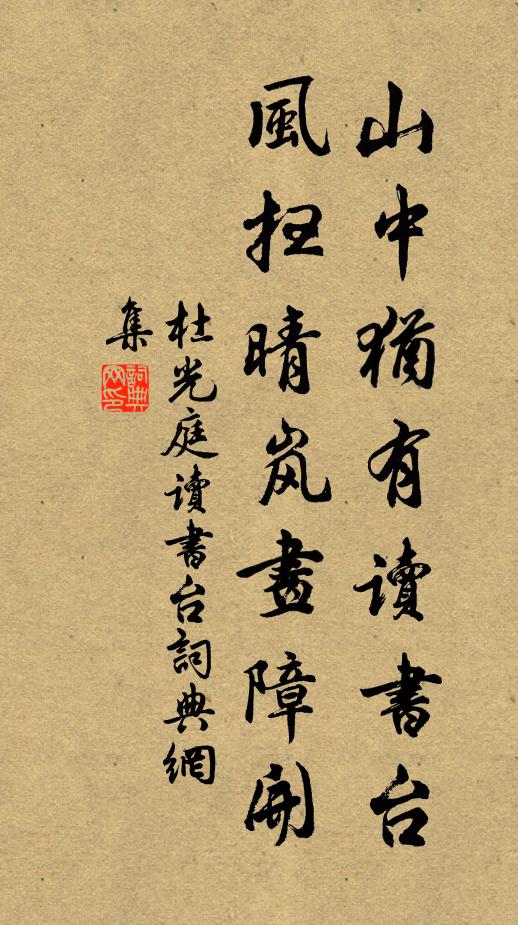 山中猶有讀書台
風扫晴岚畫障開
杜光庭讀書台詞典網
集
詞典
网印